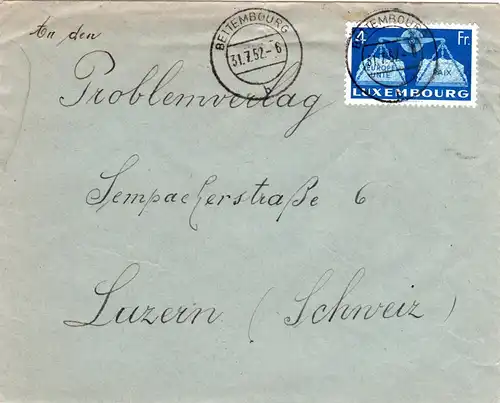 An den
BETTEMBOURG
31.7.52-6
BETTEMBOURG
4 Fr.
31.7.52
EUROPE
UNIE
PAIX
LUXEMBOURG
Problemverlag
Sempacherstraße 6
Luzern (Schweiz)